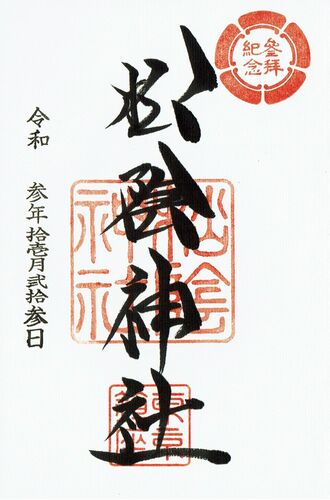 參拜
紀念
松陰神社
松陰
神社
東京
令和 参年 拾壱月弐拾参日